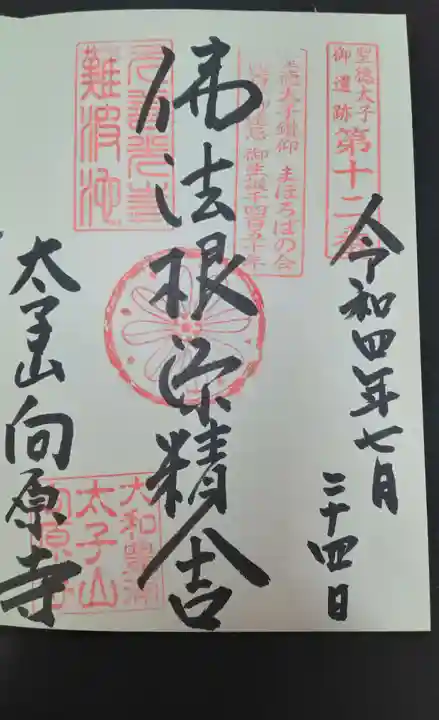 聖徳太子
御遺跡
第十二番
令和四年七月
二十四日
聖徳太子鑽仰 まほろばの会
御生誕千四百五十年
佛法根源精舎
難波池
太子山向原寺
大和豊浦
太子山
向原寺